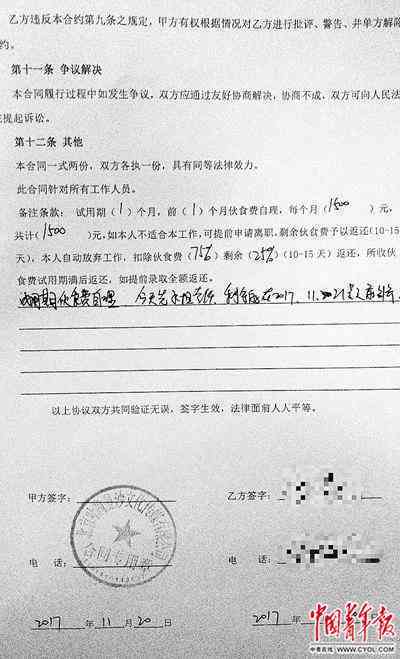 乙方违反本合约第九条之规定，甲方有权根据情况对乙方进行批评、警告、并单方解除
约。
第十一条 争议解决
本合同履行过程中如发生争议，双方应通过友好协商解决，协商不成、双方可向人民法
提起诉讼。
第十二条 其他
本合同一式两份，双方各执一份，具有同等法律效力。
此合同针对所有工作人员。
备注条款： 试用期（1）个月，前（1）个月伙食费自理，每个月（1500）元，
共计（1500）元，如本人不适合本工作，可提前申请离职，剩余伙食费予以返还（10-15
天），本人自动放弃工作，扣除伙食费（75%）剩余（25%）（10-15天）返还，所收伙
食费试用期满后返还，如提前录取全额返还。
试用期伙食费自理 2017.11.
以上协议双方共同验证无误，签字生效，法律面前人人平等。
甲方签字： 乙方签字：
合同专用章
电 话： 电 话：
2017 年 11 月 20 日 2017 年
中国青年报
中青在线 WWW.CYOL.COM